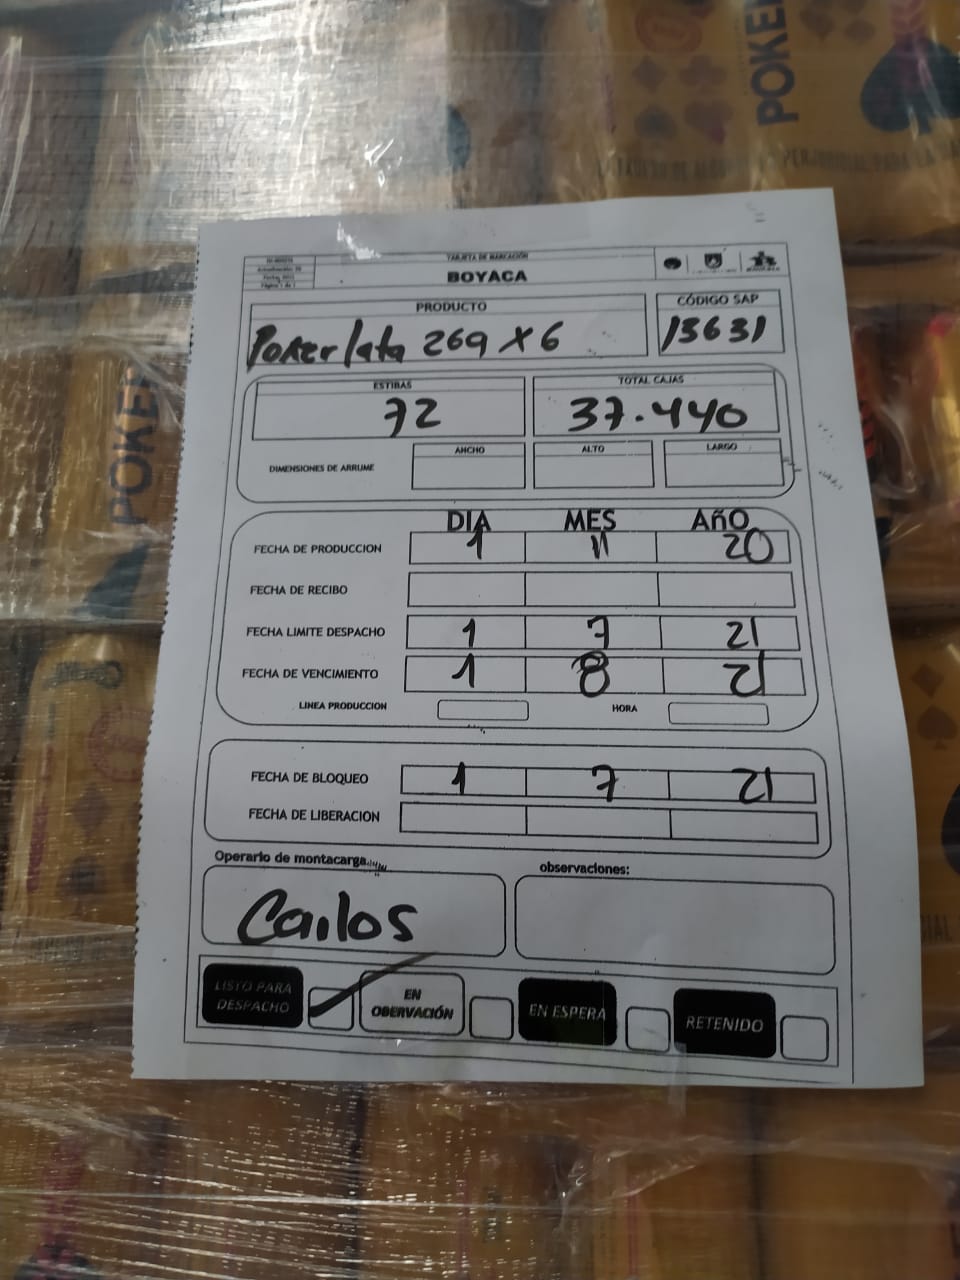 POKER
POKER
TARJETA DE MARCACIÓN
BOYACA
Página 1 de 1
PRODUCTO
CÓDIGO SAP
Poker lata 269 X 6
13631
ESTIBAS
TOTAL CAJAS
72
37.440
DIMENSIONES DE ARRUME
ANCHO
ALTO
LARGO
DIA MES AñO
FECHA DE PRODUCCION 1 11 20
FECHA DE RECIBO
FECHA LIMITE DESPACHO 1 7 21
FECHA DE VENCIMIENTO 1 8 21
LINEA PRODUCCION HORA
FECHA DE BLOQUEO 1 7 21
FECHA DE LIBERACION
Operario de montacarga
observaciones:
Carlos
LISTO PARA DESPACHO
EN OBERVACIÓN
EN ESPERA
RETENIDO